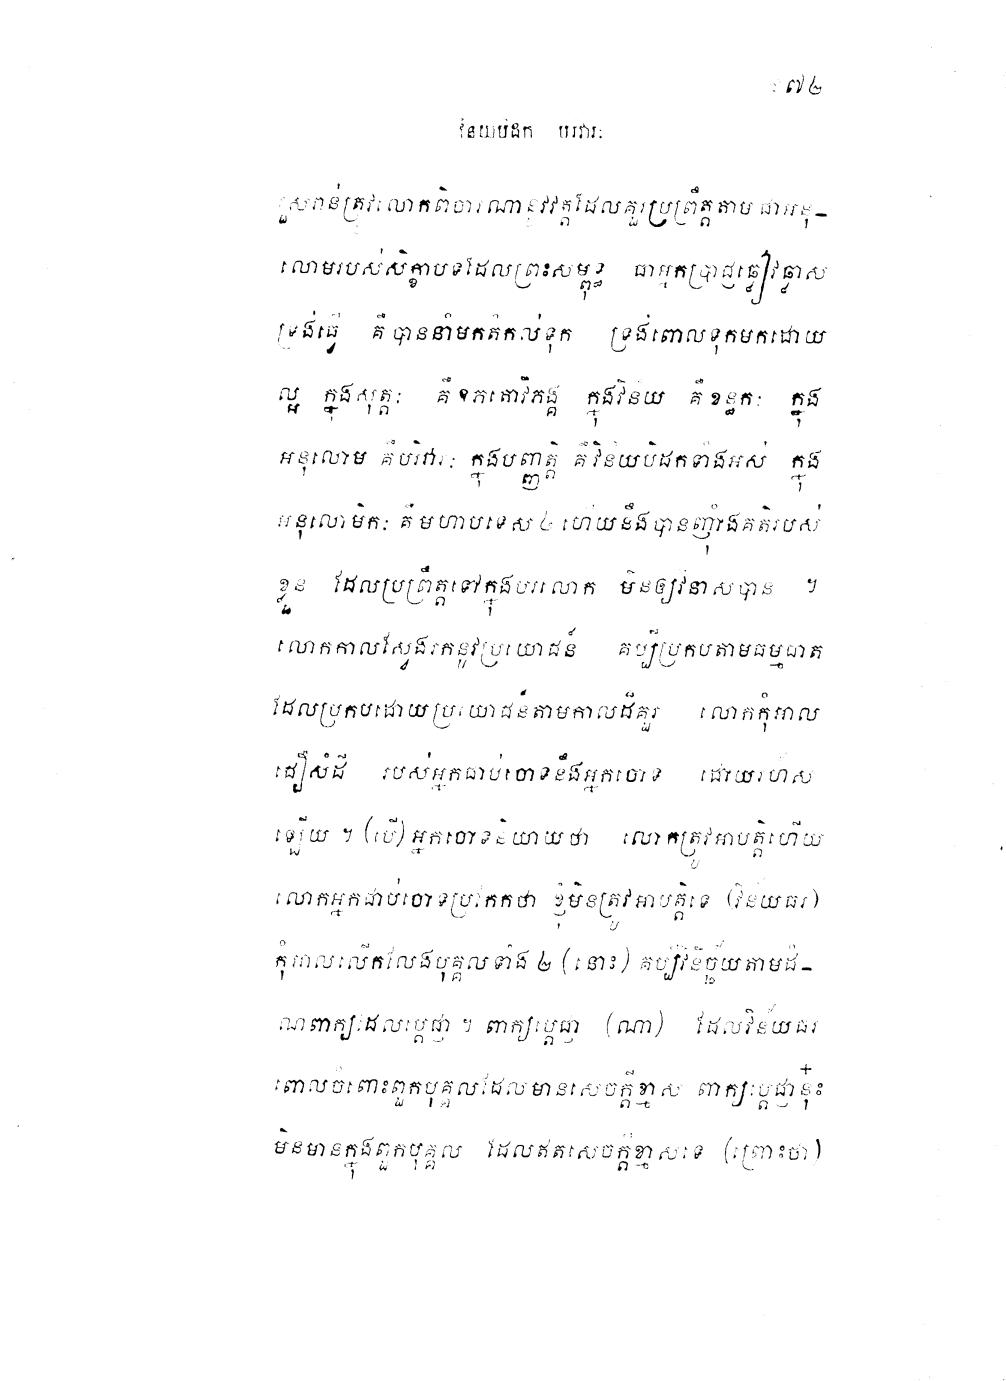 ៧៤
វិនយបិដក បរិវារៈ
រួសរាន់ត្រូវលោកពិចារណានូវវត្តដែលគួរប្រព្រឹត្តតាម ជាអនុ-
លោមរបស់សិក្ខាបទដែលព្រះសម្ពុទ្ធ ជាអ្នកប្រាជ្ញឆ្លៀវឆ្លាស
ទ្រង់ធ្វើ គឺបាននាំមកតំកល់ទុក ទ្រង់ពោលទុកមកដោយ
ល្អ ក្នុងសុត្តៈ គឺឧភតោវិភង្គ ក្នុងវិន័យ គឺខន្ធកៈ ក្នុង
អនុលោម គឺបរិវារៈ ក្នុងបញ្ញត្តិ គឺវិន័យបិដកទាំងអស់ ក្នុង
អនុលោមិកៈ គឺមហាបទេស ៤ ហើយនឹងបានញ៉ាំងគតិរបស់
ខ្លួន ដែលប្រព្រឹត្តទៅក្នុងបរលោក មិនឲ្យវិនាសបាន ។
លោកកាលស្វែងរកនូវប្រយោជន៍ គប្បីប្រកបតាមធម្មជាត
ដែលប្រកបដោយប្រយោជន៍តាមកាលដ៏គួរ លោកកុំអាល
ជឿសំដី របស់អ្នកជាប់ចោទនឹងអ្នកចោទ ដោយរហ័ស
ឡើយ ។ (បើ) អ្នកចោទនិយាយថា លោកត្រូវអាបត្តិហើយ
លោកអ្នកជាប់ចោទប្រកែកថា ខ្ញុំមិនត្រូវអាបត្តិទេ (វិន័យធរ)
កុំអាលលើកលែងបុគ្គលទាំង ២ (នោះ) គប្បីវិនិច្ឆ័យតាមដំ-
ណពាក្យដែលប្តេជ្ញា ។ ពាក្យប្តេជ្ញា (ណា) ដែលវិន័យធរ
ពោលចំពោះពួកបុគ្គលដែលមានសេចក្តីខ្មាស ពាក្យប្តេជ្ញានុ៎ះ
មិនមានក្នុងពួកបុគ្គល ដែលឥតសេចក្តីខ្មាសទេ (ព្រោះថា)